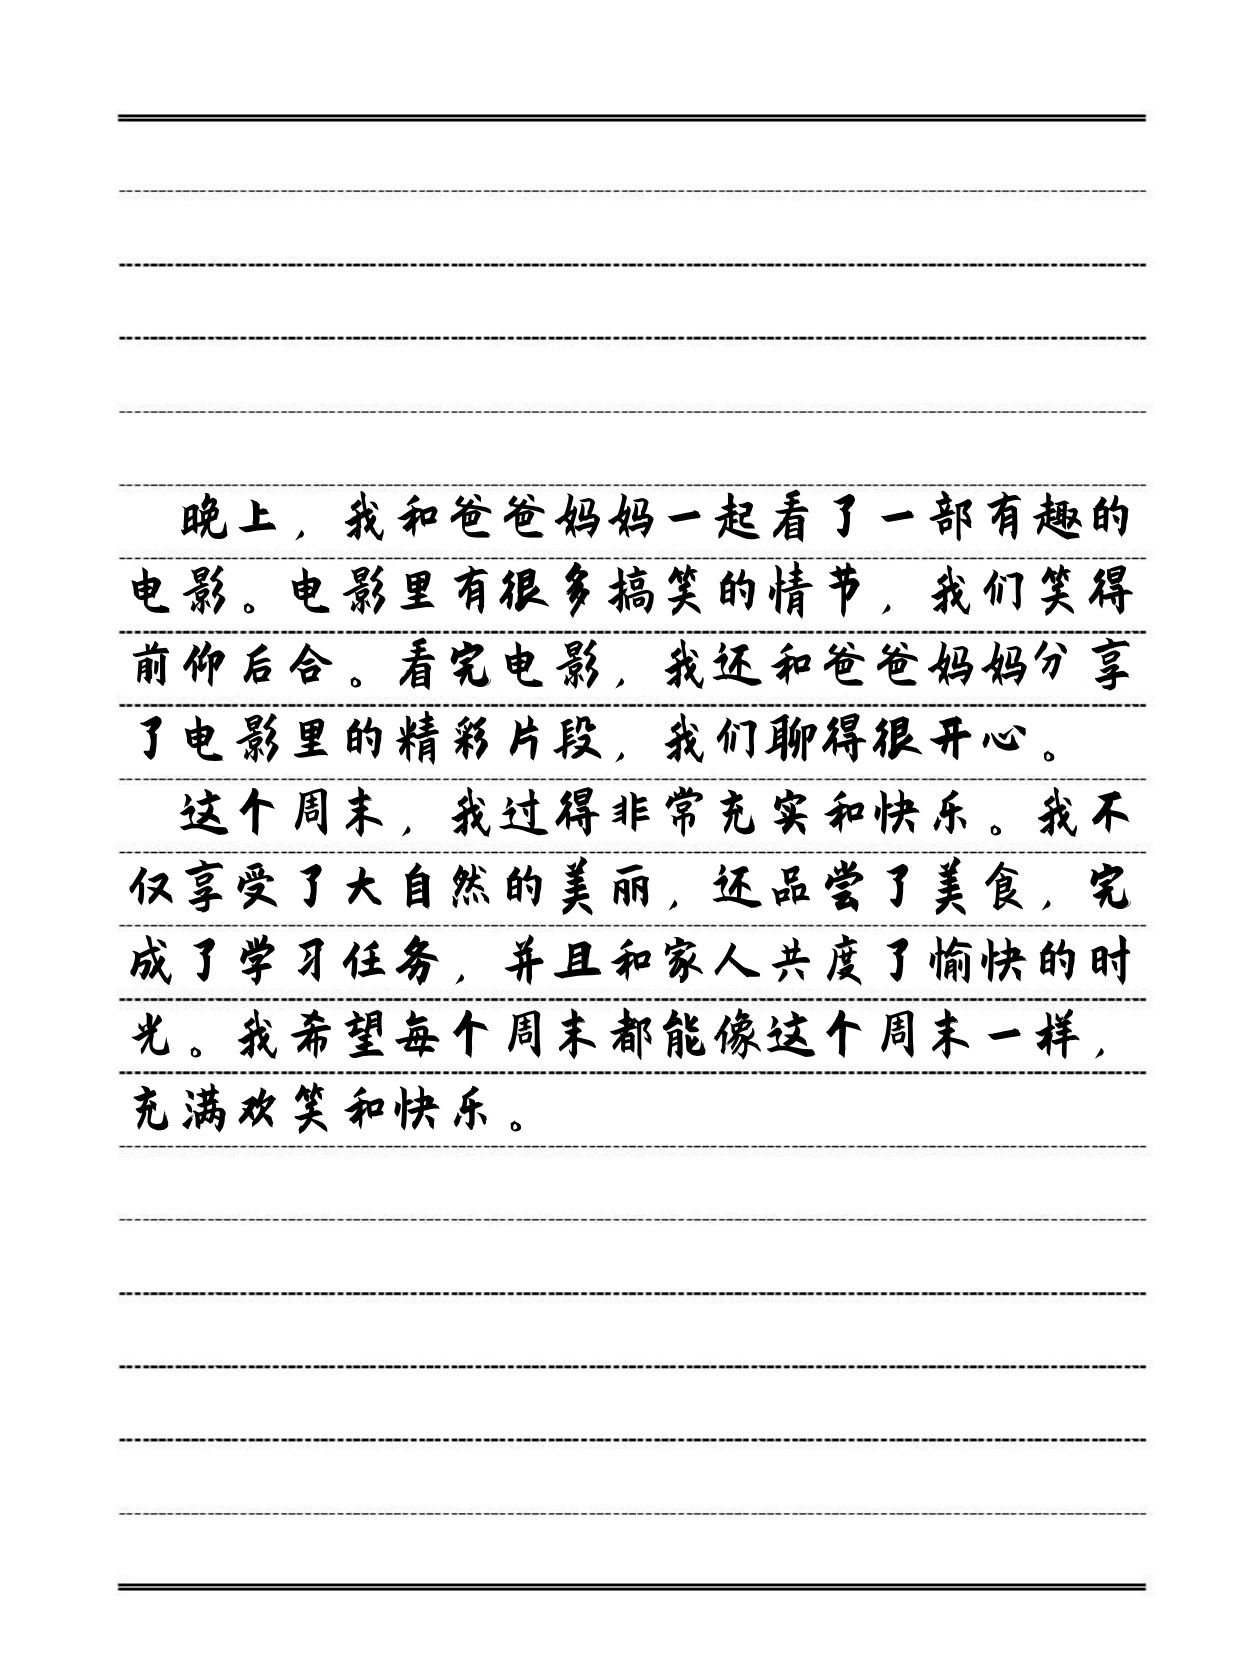 晚上，我和爸爸妈妈一起看了一部有趣的
电影。电影里有很多搞笑的情节，我们笑得
前仰后合。看完电影，我还和爸爸妈妈分享
了电影里的精彩片段，我们聊得很开心。
这个周末，我过得非常充实和快乐。我不
仅享受了大自然的美丽，还品尝了美食，完
成了学习任务，并且和家人共度了愉快的时
光。我希望每个周末都能像这个周末一样，
充满欢笑和快乐。